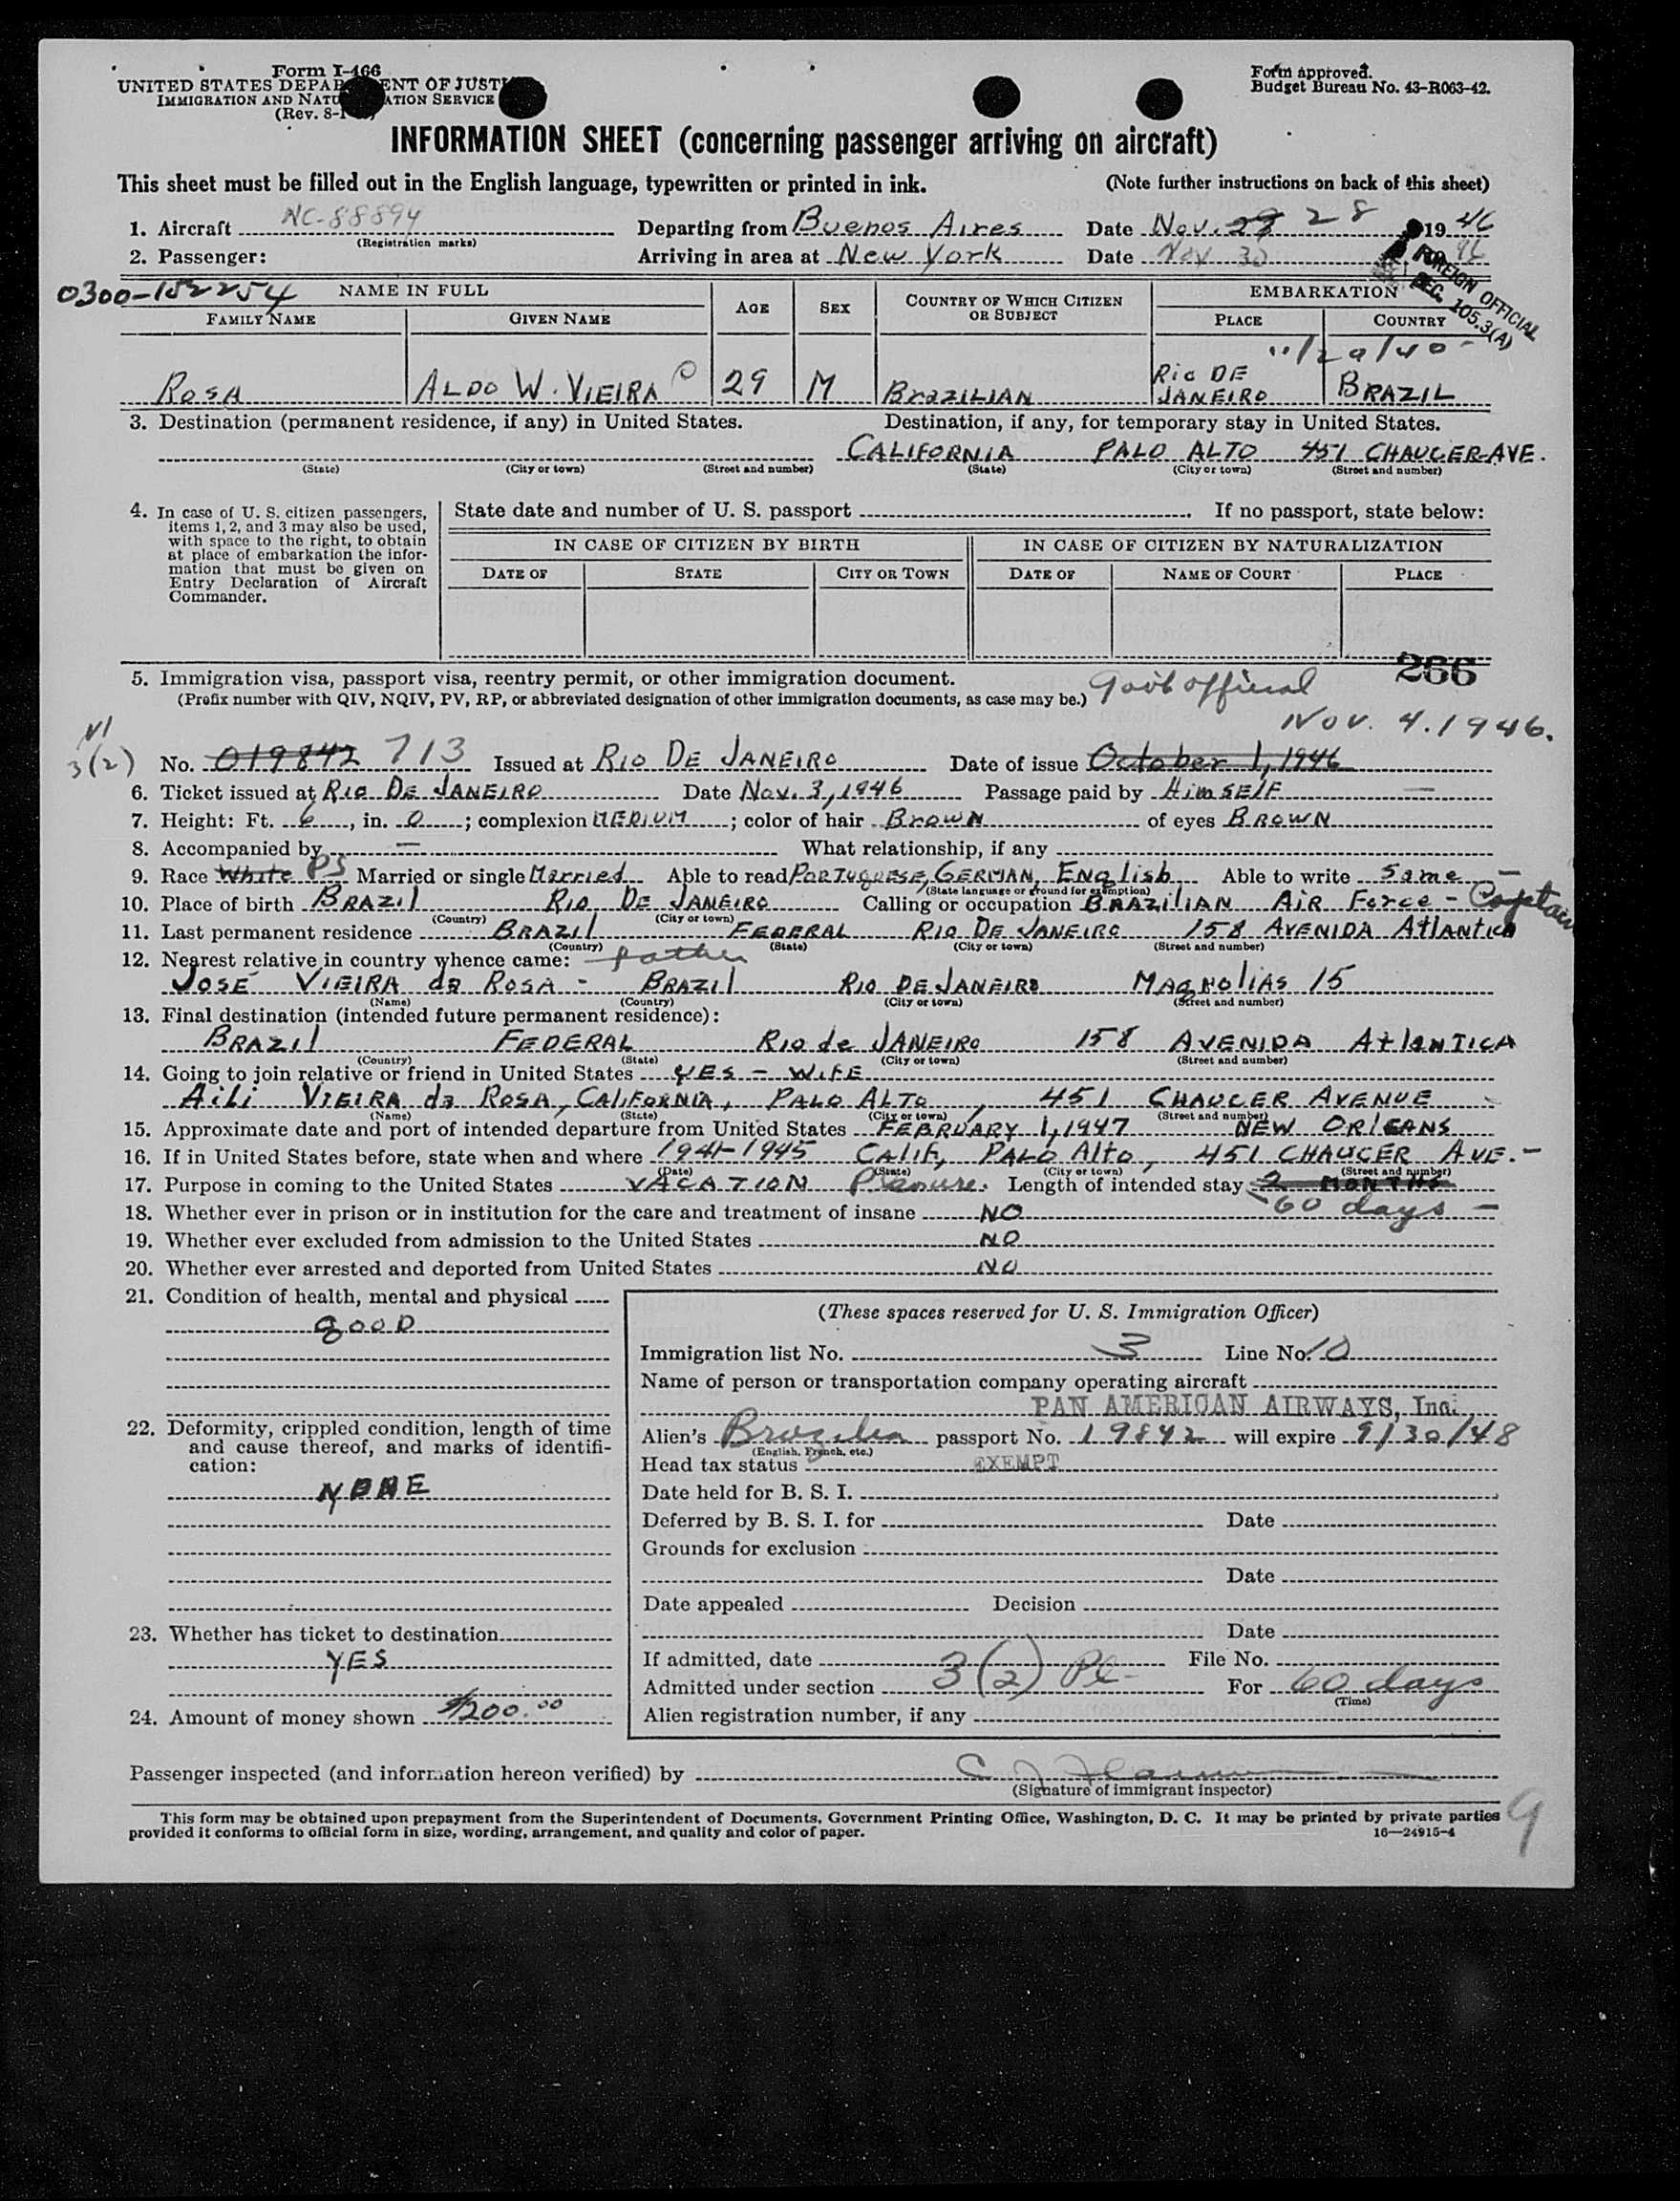 Form I-466
UNITED STATES DEPARTMENT OF JUSTICE
IMMIGRATION AND NATURALIZATION SERVICE
(Rev. 8-1
Form approved.
Budget Bureau No. 43-R063-42.
INFORMATION SHEET (concerning passenger arriving on aircraft)
This sheet must be filled out in the English language, typewritten or printed in ink. (Note further instructions on back of this sheet)
1. Aircraft NC-88894 Departing from Buenos Aires Date Nov. 28 1946
(Registration marks)
2. Passenger: Arriving in area at New York Date Nov 30 1946
FOREIGN OFFICIAL
SEC. 105.3(A)
0300-152254
NAME IN FULL AGE SEX COUNTRY OF WHICH CITIZEN OR SUBJECT EMBARKATION
FAMILY NAME GIVEN NAME PLACE COUNTRY
11/29/40
ROSA ALDO W. VIEIRA 29 M BRAZILIAN RIO DE JANEIRO BRAZIL
3. Destination (permanent residence, if any) in United States. Destination, if any, for temporary stay in United States.
CALIFORNIA PALO ALTO 451 CHAUCER AVE.
(State) (City or town) (Street and number) (State) (City or town) (Street and number)
4. In case of U. S. citizen passengers, items 1, 2, and 3 may also be used, with space to the right, to obtain at place of embarkation the information that must be given on Entry Declaration of Aircraft Commander.
State date and number of U. S. passport If no passport, state below:
IN CASE OF CITIZEN BY BIRTH IN CASE OF CITIZEN BY NATURALIZATION
DATE OF STATE CITY OR TOWN DATE OF NAME OF COURT PLACE
266
5. Immigration visa, passport visa, reentry permit, or other immigration document.
(Prefix number with QIV, NQIV, PV, RP, or abbreviated designation of other immigration documents, as case may be.) Govt official
NOV. 4. 1946.
3(2) No. 019842 713 Issued at RIO DE JANEIRO Date of issue October 1, 1946
6. Ticket issued at RIO DE JANEIRO Date Nov. 3, 1946 Passage paid by HimSELF
7. Height: Ft. 6, in. 0; complexion MEDIUM; color of hair Brown of eyes BROWN
8. Accompanied by — What relationship, if any
9. Race White PS Married or single Married Able to read PORTUGUESE, GERMAN, English Able to write Same
(State language or ground for exemption)
10. Place of birth BRAZil RIO DE JANEIRO Calling or occupation BRAZILIAN AIR Force - Captain
(Country) (City or town)
11. Last permanent residence BRAZil FEDERAL RIO DE JANEIRO 158 AVENIDA Atlantica
(Country) (State) (City or town) (Street and number)
12. Nearest relative in country whence came: father
JOSÉ VIEIRA da ROSA - BRAZil RIO DE JANEIRO MAGNOLIAS 15
(Name) (Country) (City or town) (Street and number)
13. Final destination (intended future permanent residence):
BRAZil FEDERAL Rio de JANEIRO 158 AVENIDA AtlaNTICA
(Country) (State) (City or town) (Street and number)
14. Going to join relative or friend in United States YES - WIFE
Aili VIEIRA da ROSA, CALIFORNIA, PALO ALTO, 451 CHAUCER AVENUE
(Name) (State) (City or town) (Street and number)
15. Approximate date and port of intended departure from United States FEBRUARY 1, 1947 NEW ORLEANS
16. If in United States before, state when and where 1941-1945 CALIF, PALO Alto, 451 CHAUCER AVE. -
(Date) (State) (City or town) (Street and number)
17. Purpose in coming to the United States VACATION Pleasure. Length of intended stay 2 MONTHS
60 days —
18. Whether ever in prison or in institution for the care and treatment of insane NO
19. Whether ever excluded from admission to the United States NO
20. Whether ever arrested and deported from United States NO
21. Condition of health, mental and physical
gooD
22. Deformity, crippled condition, length of time and cause thereof, and marks of identification:
NONE
23. Whether has ticket to destination
YES
24. Amount of money shown $200.00
(These spaces reserved for U. S. Immigration Officer)
Immigration list No. 3 Line No. 10
Name of person or transportation company operating aircraft
PAN AMERICAN AIRWAYS, Inc.
Alien's Brazilian passport No. 19842 will expire 9/30/48
(English, French, etc.)
Head tax status EXEMPT
Date held for B. S. I.
Deferred by B. S. I. for Date
Grounds for exclusion
Date
Date appealed Decision
Date
If admitted, date File No.
Admitted under section 3(2) Pl- For 60 days
(Time)
Alien registration number, if any
Passenger inspected (and information hereon verified) by
(Signature of immigrant inspector)
This form may be obtained upon prepayment from the Superintendent of Documents, Government Printing Office, Washington, D. C. It may be printed by private parties
provided it conforms to official form in size, wording, arrangement, and quality and color of paper. 16—24915-4
9